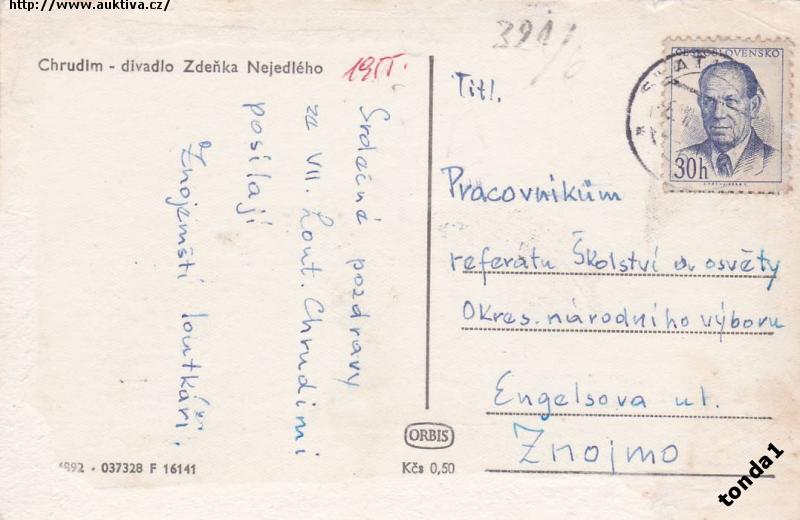 http://www.auktiva.cz/
Chrudim - divadlo Zdeňka Nejedlého
1955.
Srdečné pozdravy
za VII. Lout. Chrudimi
posílají
Znojemští loutkáři.
4892 - 037328 F 16141
ORBIS
Kčs 0,50
391/6
Titl.
ČESKOSLOVENSKO
30h
Pracovníkům
referátu Školství a osvěty
Okres. národního výboru
Engelsova ul.
Znojmo
tonda1